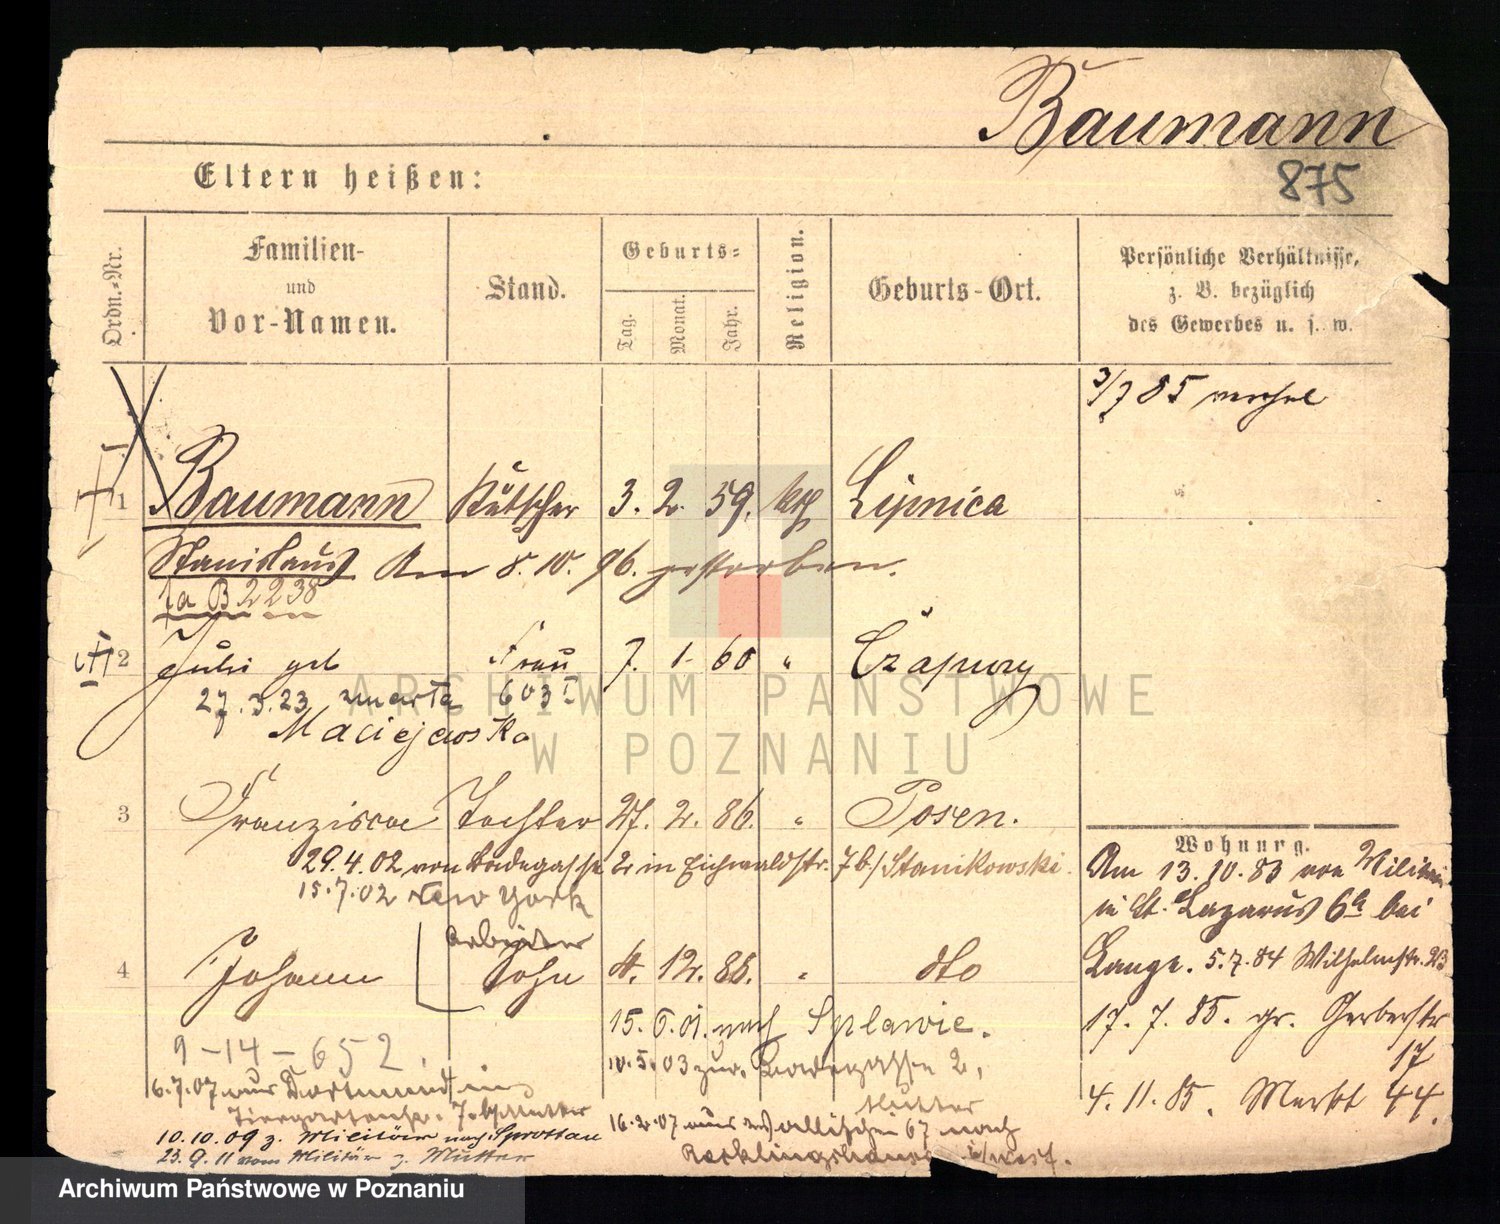 Baumann
875
Eltern heißen:
Ordn.-Nr.
Familien-
und
Vor-Namen.
Stand.
Geburts-
Tag.
Monat.
Jahr.
Religion.
Geburts-Ort.
Persönliche Verhältnisse,
z. B. bezüglich
des Gewerbes u. s. w.
3/7 85
1 Baumann Kutscher 3. 2. 59. kth Lipnica
Stanislaus Am 8. 10. 96. gestorben.
B 2238
2 geb Frau 7. 1. 60 "
27.3.23 zmarła 603 I
Maciejewska
ARCHIWUM PAŃSTWOWE
W POZNANIU
3 Franzisca Tochter 27. 2. 86. " Posen.
29.4.02 von 2 in Eichwaldstr. 7b/Stanikowski.
15.7.02 New York
Arbeiter
4 Johann Sohn 4. 12. 88. " dto
15. 6. 01. nach Splawie.
10.5.03 zur. 2,
Mutter
9-14-652.
6.7.07 aus Dortmund
Tiergartenstr. Mutter
10.10.09 z. Militär nach Sprottau
23.9.11 vom Militär z. Mutter
16.2.07 aus 67 nach
Recklinghausen i/West.
Wohnung.
Am 13.10.83 von Militair
in St. Lazarus 6a bei
Lange. 5.7.84 Wilhelmstr. 23
17. 7. 85. gr. Gerberstr
17
4. 11. 85. Markt 44.
Archiwum Państwowe w Poznaniu